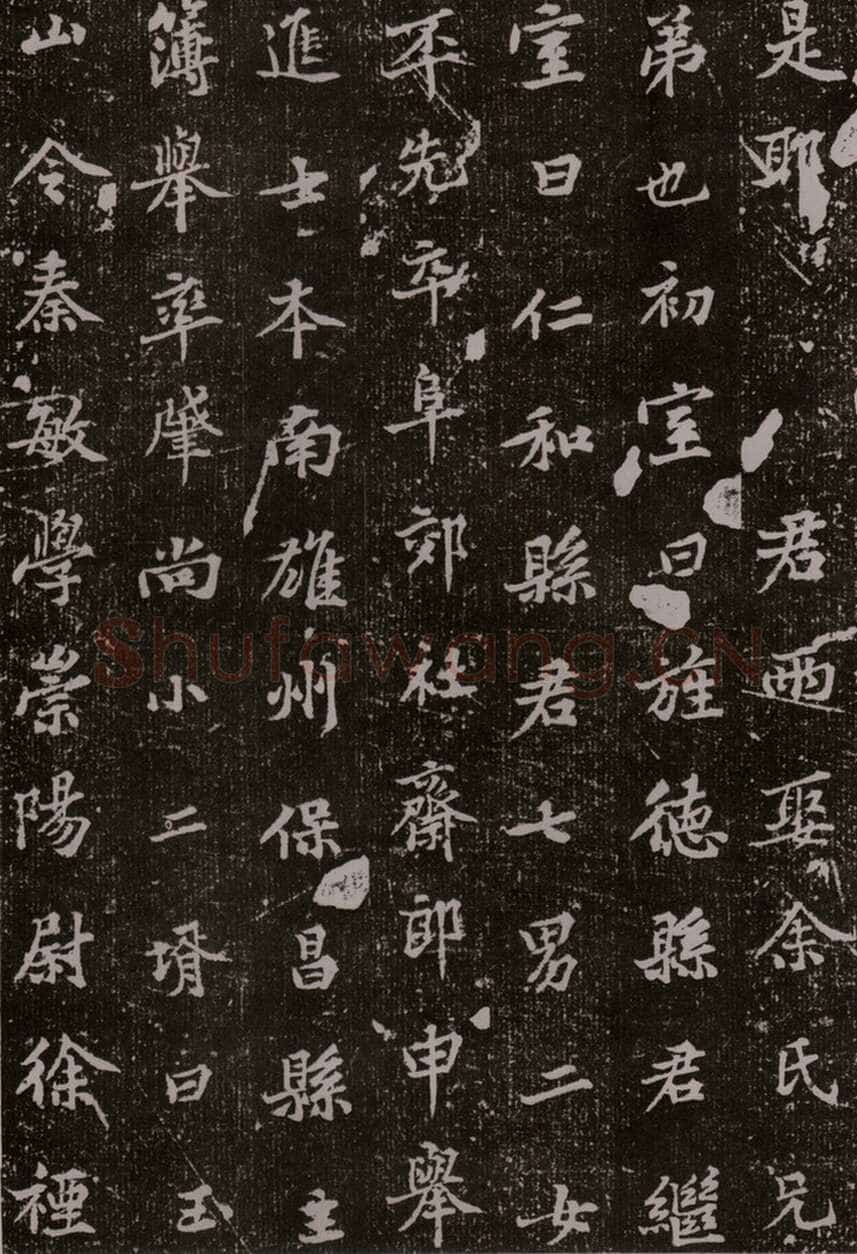 是耶君兩娶余氏兄
弟也初室曰旌德縣君繼
室曰仁和縣君七男二女
丕先卒阜郊社齋郎申舉
進士本南雄州保昌縣主
簿舉率肇尚小二壻曰玉
山令秦敏學崇陽尉徐禋
Shufawang.CN